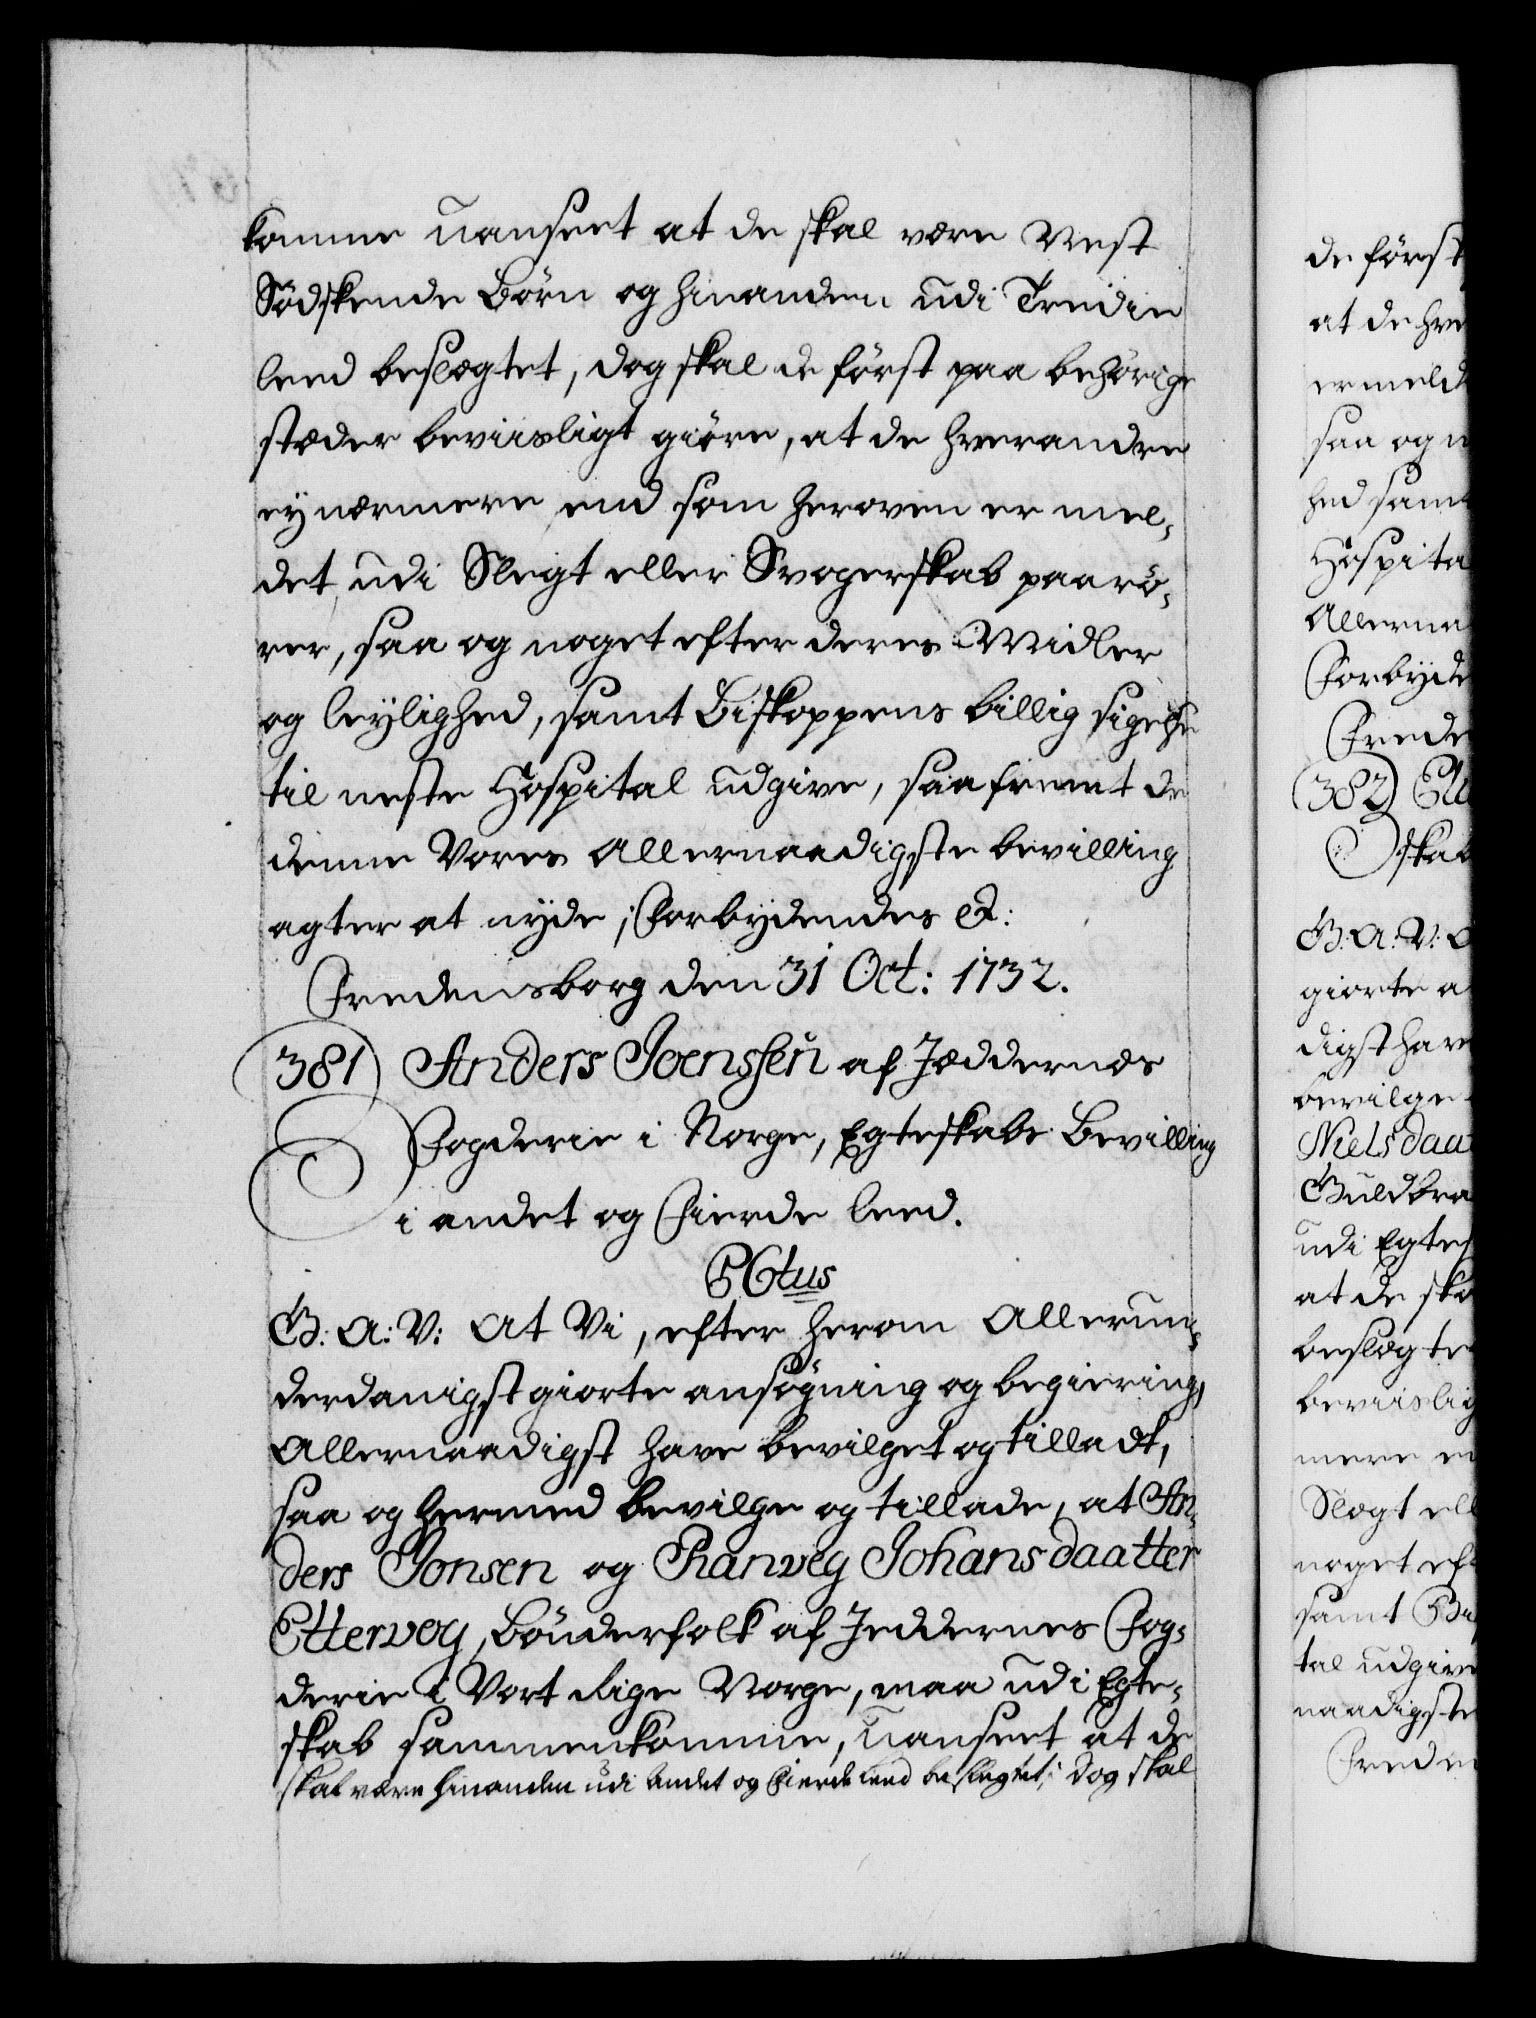 komme uanseet at de skal være Nest
Södskende Börn og hinanden udi Tredie
leed beslægtet, dog skal de först paa behörige
stæder beviisligt giöre, at de hverandre
ey nærmere end som heroven er mel,
det udi Slegt eller Svogerskab paarö,
rer, saa og noget efter deres Midler
og leylighed, samt Biskoppens billig sigelse
til neste Hospital udgive, saafremt de
denne Vores Allernaadigste bevilling
agter at nyde; Forbydendes &:
Fredensborg den 31 Oct: 1732.
381) Anders Joenssen af Jæddernes
Fogderie i Norge, Egteskabs Bevilling
i andet og Fierde leed.
G. A: V: At Vi, efter herom Allerun,
derdanigst giorte ansøgning og begiering,
Allernaadigst have bevilget og tilladt,
saa og hermed bevilge og tillade, at An,
ders Jonsen og Ranveg Johansdaatter
Ettervoy, Bönderfolk af Jeddernes Fog,
derie i Vort Rige Norge, maa udi Egte,
skab sammenkomme, uanseet at de
skal være hinanden udi andet og Fierde leed beslegtet; Dog skal
de först
at de hve
ermeld
saa og n
hed samt
Hospita
Allerna
Forbyde
Frede
382)
skab
G: A: V:
giorte a
digst have
bevilge
Niels daa
Guldbra
udi Egtes
at de ska
beslægte
beviislig
mere en
Slegt ell
noget eft
samt Bis
tal udgive
naadigste
Freden